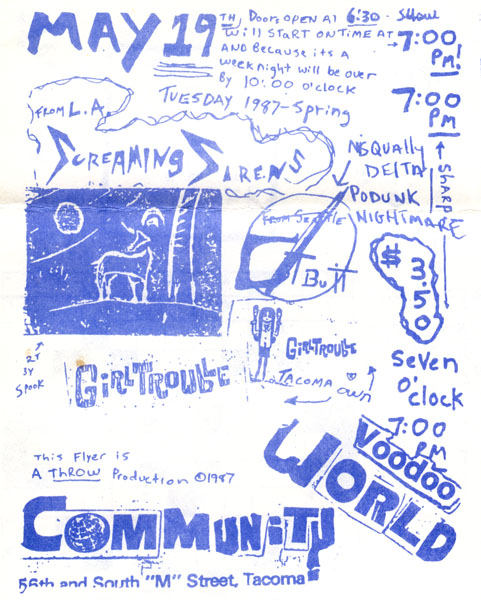 MAY 19TH, Doors open at 6:30 - Show
will start on time at → 7:00 PM!
and because its a
weeknight will be over
by 10:00 o'clock
7:00 PM
TUESDAY 1987-Spring
FROM L.A.
SCREAMING SIRENS
NISQUALLY
DELTA
PODUNK
NIGHTMARE
SHARP
FROM SEATTLE
BUTT
$3.50
GIRLTROUBLE
GIRLTROUBLE
TACOMA OWN
BY
SPOOK
seven
o'clock
7:00
PM
This Flyer is
A THROW Production ©1987
VOODOO
WORLD
COMMUNITY
56th and South "M" Street, Tacoma